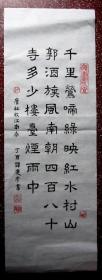 千里鶯啼綠映紅水村山
郭酒旗風南朝四百八十
寺多少樓臺煙雨中
唐杜牧江南春 丁酉